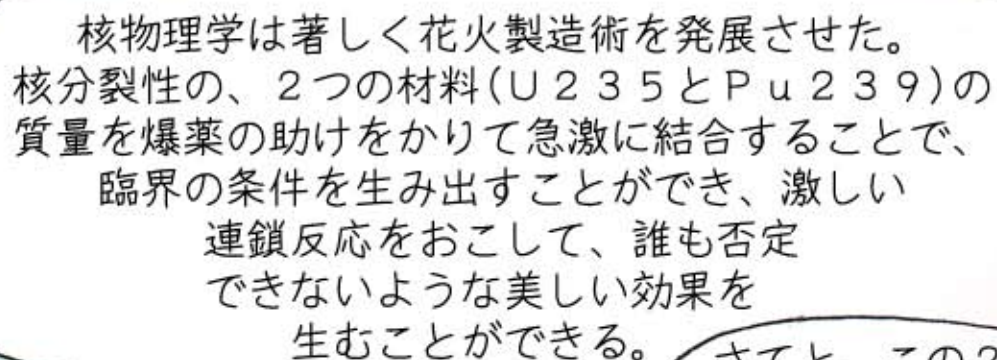 核物理学は著しく花火製造術を発展させた。
核分裂性の、２つの材料(Ｕ２３５とＰｕ２３９)の
質量を爆薬の助けをかりて急激に結合することで、
臨界の条件を生み出すことができ、激しい
連鎖反応をおこして、誰も否定
できないような美しい効果を
生むことができる。
さてと、この２